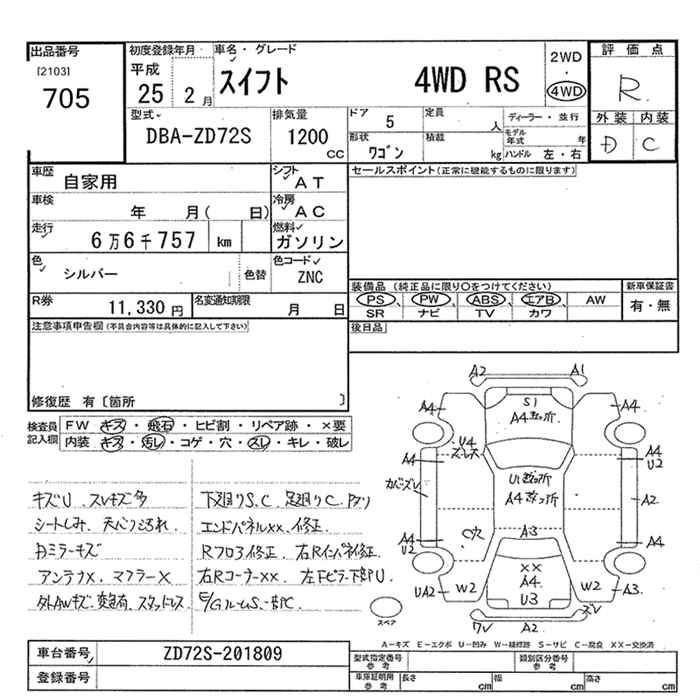 出品番号
[2103]
705
初度登録年月
平成
25 2月
車名・グレード
スイフト 4WD RS
2WD
・
4WD
評価点
R
外装 内装
D C
型式
DBA-ZD72S
排気量
1200
cc
ドア 5
定員 人
ディーラー・並行
形状
ワゴン
積載 kg
モデル年式 年
ハンドル 左・右
車歴
自家用
シフト
AT
車検
年 月( 日)
冷房
AC
走行
6万6千757 km
燃料
ガソリン
色
シルバー
色替
色コード
ZNC
R券
11,330 円
名変通知期限
月 日
セールスポイント(正常に機能するものに限ります)
装備品(純正品に限り〇をつけてください)
PS PW ABS エアB AW
SR ナビ TV カワ
新車保証書
有・無
後日品
注意事項申告欄(不具合内容等は具体的に記入して下さい)
修復歴 有〔箇所 〕
検査員
記入欄
FW キズ・飛石・ヒビ割・リペア跡・×要
内装 キズ・汚レ・コゲ・穴・スレ・キレ・破レ
キズU スレキズ多
シートしみ、天心ゴ汚れ
ミラーキズ
アンテナX、マフラーX
外AWキズ、変色有、スタッドレス
下廻りS、C 足廻りC
エンドパネルXX、修正
Rフロア修正 右Rインパネ修正
右RコーナーXX 左Fピラー下部U
E/GルームS、一部C
A2 A1
A4 A4
S1
A4数ヶ所
U4
A4 A4
U2
U1数ヶ所
A4数ヶ所
A2
C穴
A3
A4 A4
U2
XX
A4
U3
UA2 W2 W2 A3
A2
スペア
A-キズ E-エクボ U-凹み W-補修跡 S-サビ C-腐食 XX-交換済
車台番号 ZD72S-201809
登録番号
型式指定番号
参考
類別区分番号
参考
車庫証明用
参考
長さ cm 幅 cm 高さ cm